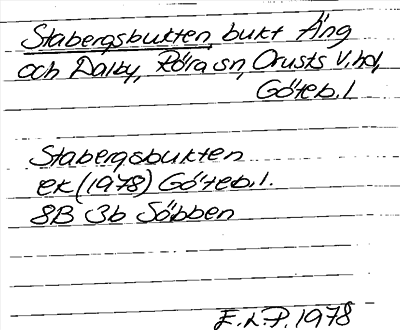 Stabergsbukten, bukt Äng
och Dalby, Röra sn, Orusts V. hd,
Göteb. l
Stabergsbukten
ek (1978) Göteb. l.
8B 3b Söbben
E.L.P. 1978